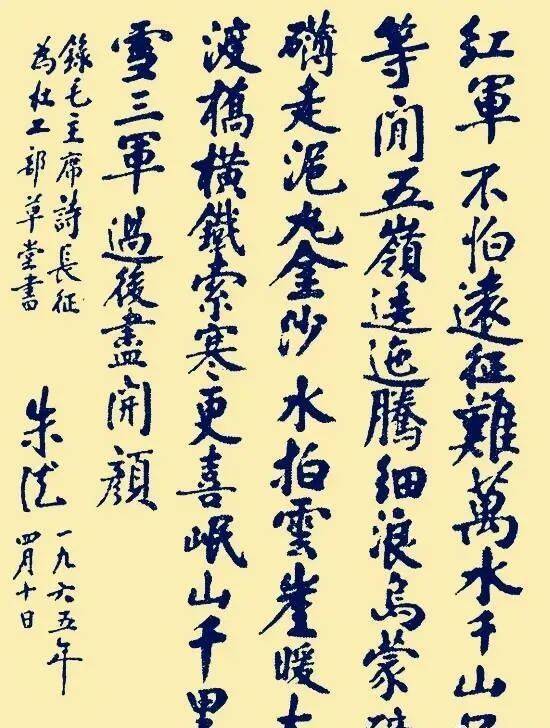 紅軍不怕遠征難萬水千山
等閒五嶺逶迤騰細浪烏蒙
礴走泥丸金沙水拍雲崖暖
渡橋橫鐵索寒更喜岷山千里
雪三軍過後盡開顏
錄毛主席詩長征
為杜工部草堂書
朱德
一九六五年
四月十日